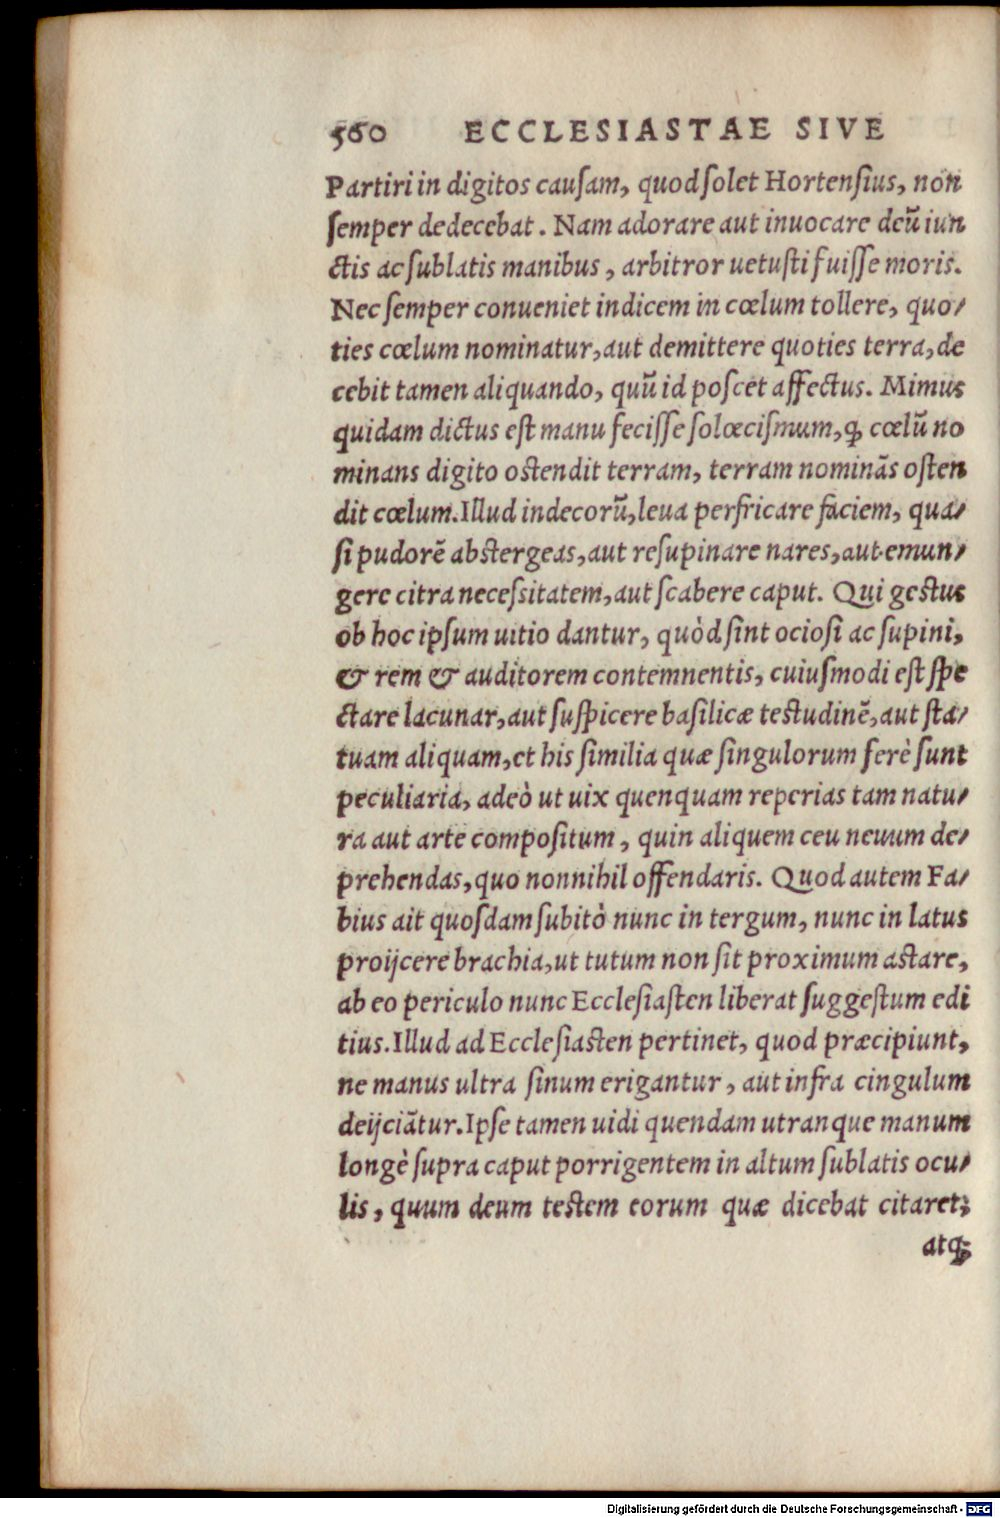 560 ECCLESIASTAE SIVE
Partiri in digitos causam, quod solet Hortensius, non
semper dedecebat. Nam adorare aut inuocare deũ iun
ctis ac sublatis manibus, arbitror uetusti fuisse moris.
Nec semper conueniet indicem in cœlum tollere, quo/
ties cœlum nominatur, aut demittere quoties terra, de
cebit tamen aliquando, quũ id poscet affectus. Mimus
quidam dictus est manu fecisse solœcismum, ꝙ cœlũ no
minans digito ostendit terram, terram nominãs osten
dit cœlum. Illud indecorũ, leua perfricare faciem, qua/
si pudorẽ abstergeas, aut resupinare nares, aut emun/
gere citra necessitatem, aut scabere caput. Qui gestus
ob hoc ipsum uitio dantur, quòd sint ociosi ac supini,
& rem & auditorem contemnentis, cuiusmodi est spe
ctare lacunar, aut suspicere basilicæ testudinẽ, aut sta/
tuam aliquam, et his similia quæ singulorum ferè sunt
peculiaria, adeò ut uix quenquam reperias tam natu/
ra aut arte compositum, quin aliquem ceu neuum de/
prehendas, quo nonnihil offendaris. Quod autem Fa/
bius ait quosdam subitò nunc in tergum, nunc in latus
proijcere brachia, ut tutum non sit proximum astare,
ab eo periculo nunc Ecclesiasten liberat suggestum edi
tius. Illud ad Ecclesiasten pertinet, quod præcipiunt,
ne manus ultra sinum erigantur, aut infra cingulum
deijciãtur. Ipse tamen uidi quendam utranque manum
longè supra caput porrigentem in altum sublatis ocu/
lis, quum deum testem eorum quæ dicebat citaret;
atq;
Digitalisierung gefördert durch die Deutsche Forschungsgemeinschaft - DFG